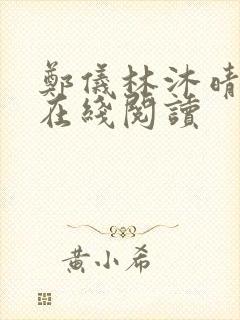 鄭儀林沐晴
在綫閱讀
黃小希